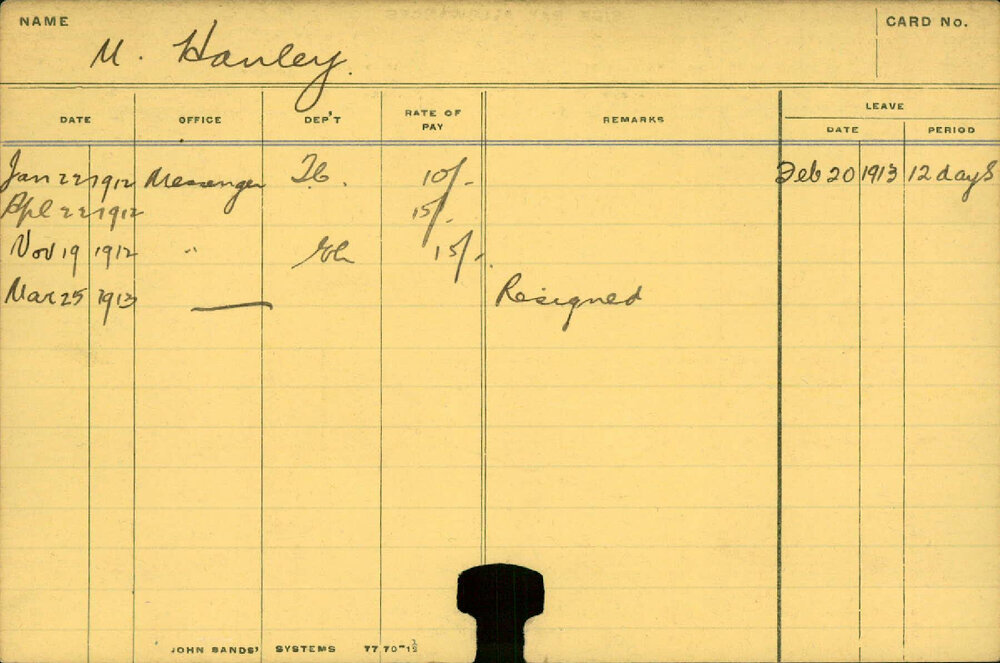 NAME
M. Hanley.
CARD No.
DATE OFFICE DEP'T RATE OF PAY REMARKS LEAVE
DATE PERIOD
Jan 22 1912 Messenger 10/- Feb 20 1913 12 days
Apl 22 1912 15/-
Nov 19 1912 " 15/-
Mar 25 1913 — Resigned
JOHN SANDS' SYSTEMS 7770-1½